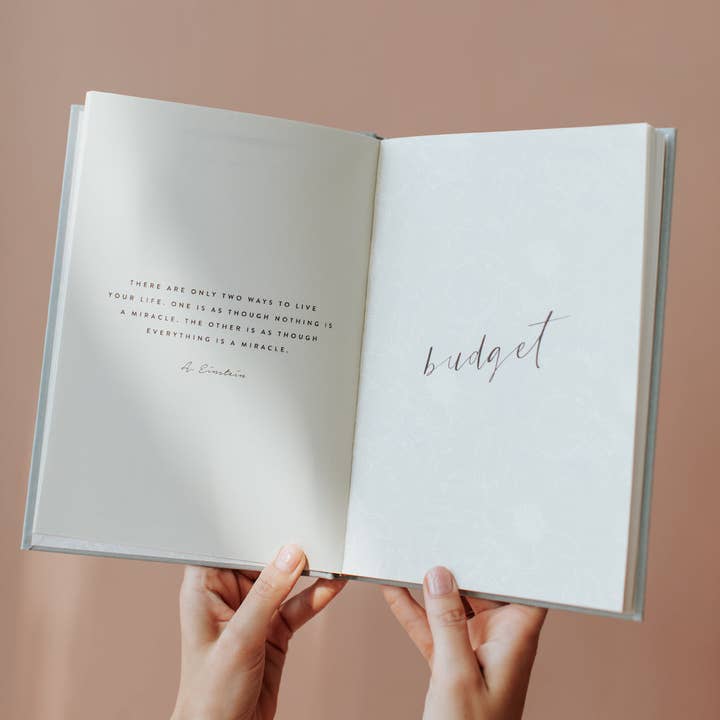 THERE ARE ONLY TWO WAYS TO LIVE
YOUR LIFE. ONE IS AS THOUGH NOTHING IS
A MIRACLE. THE OTHER IS AS THOUGH
EVERYTHING IS A MIRACLE.
A. Einstein
budget